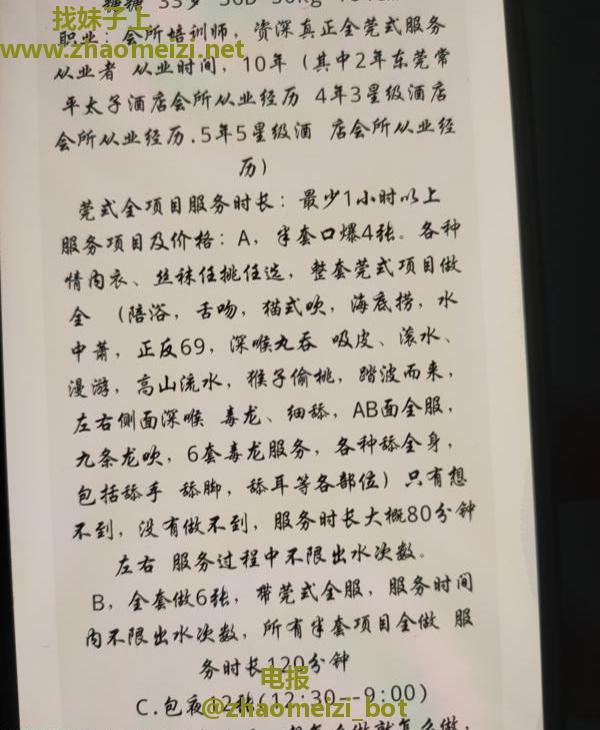 找妹子上
www.zhaomeizi.net
职业：会所培训师，资深真正全莞式服务
从业者 从业时间，10年（其中2年东莞常
平太子酒店会所从业经历 4年3星级酒店
会所从业经历.5年5星级酒 店会所从业经
历）
莞式全项目服务时长：最少1小时以上
服务项目及价格：A，半套口爆4张。各种
情内衣、丝袜任挑任选，整套莞式项目做
全 （陪浴，舌吻，猫式吹，海底捞，水
中萧，正反69，深喉丸吞 吸皮、滚水、
漫游，高山流水，猴子偷桃，踏波而来，
左右侧面深喉 毒龙、细舔，AB面全服，
九条龙吹，6套毒龙服务，各种舔全身，
包括舔手 舔脚，舔耳等各部位）只有想
不到，没有做不到，服务时长大概80分钟
左右 服务过程中不限出水次数。
B，全套做6张，带莞式全服，服务时间
内不限出水次数，所有半套项目全做 服
务时长120分钟
C.包夜12张(12:30--9:00)
电报
@zhaomeizi_bot